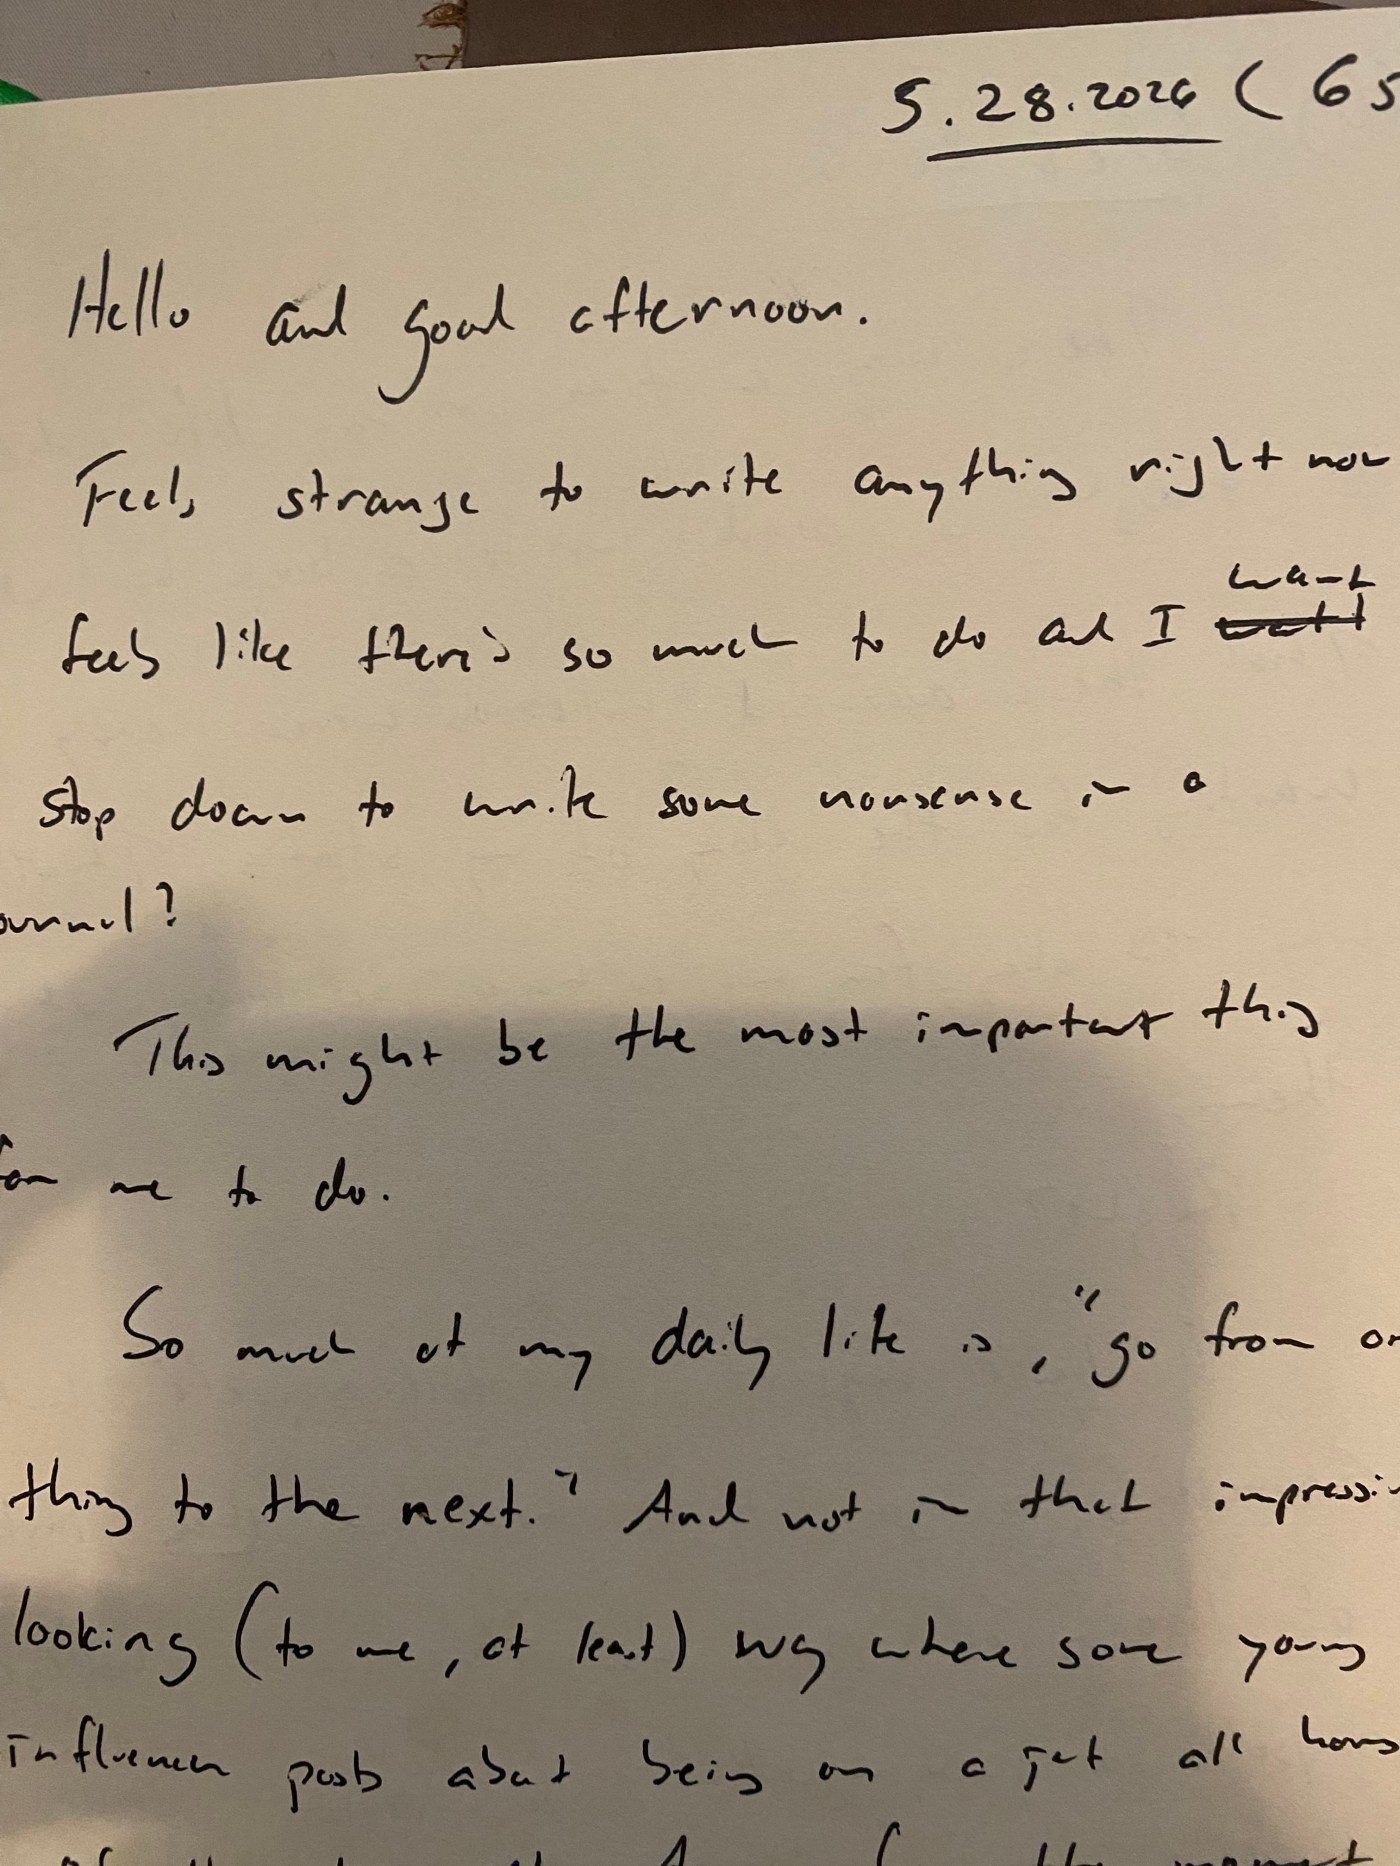 5.28.2026 (65
Hello and good afternoon.
Feels strange to write anything right now
feels like there's so much to do and I want
stop down to write some nonsense in a
ournal?
This might be the most important thing
for me to do.
So much of my daily life is, "go from on
thing to the next." And not in that impressi
looking (to me, at least) way where some young
influencer posts about being on a jet all hours